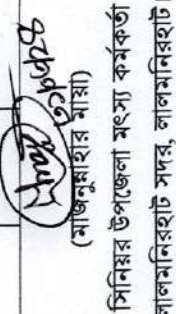 (মাজনুন্নাহার মায়া)
সিনিয়র উপজেলা মৎস্য কর্মকর্তা
লালমনিরহাট সদর, লালমনিরহাট।